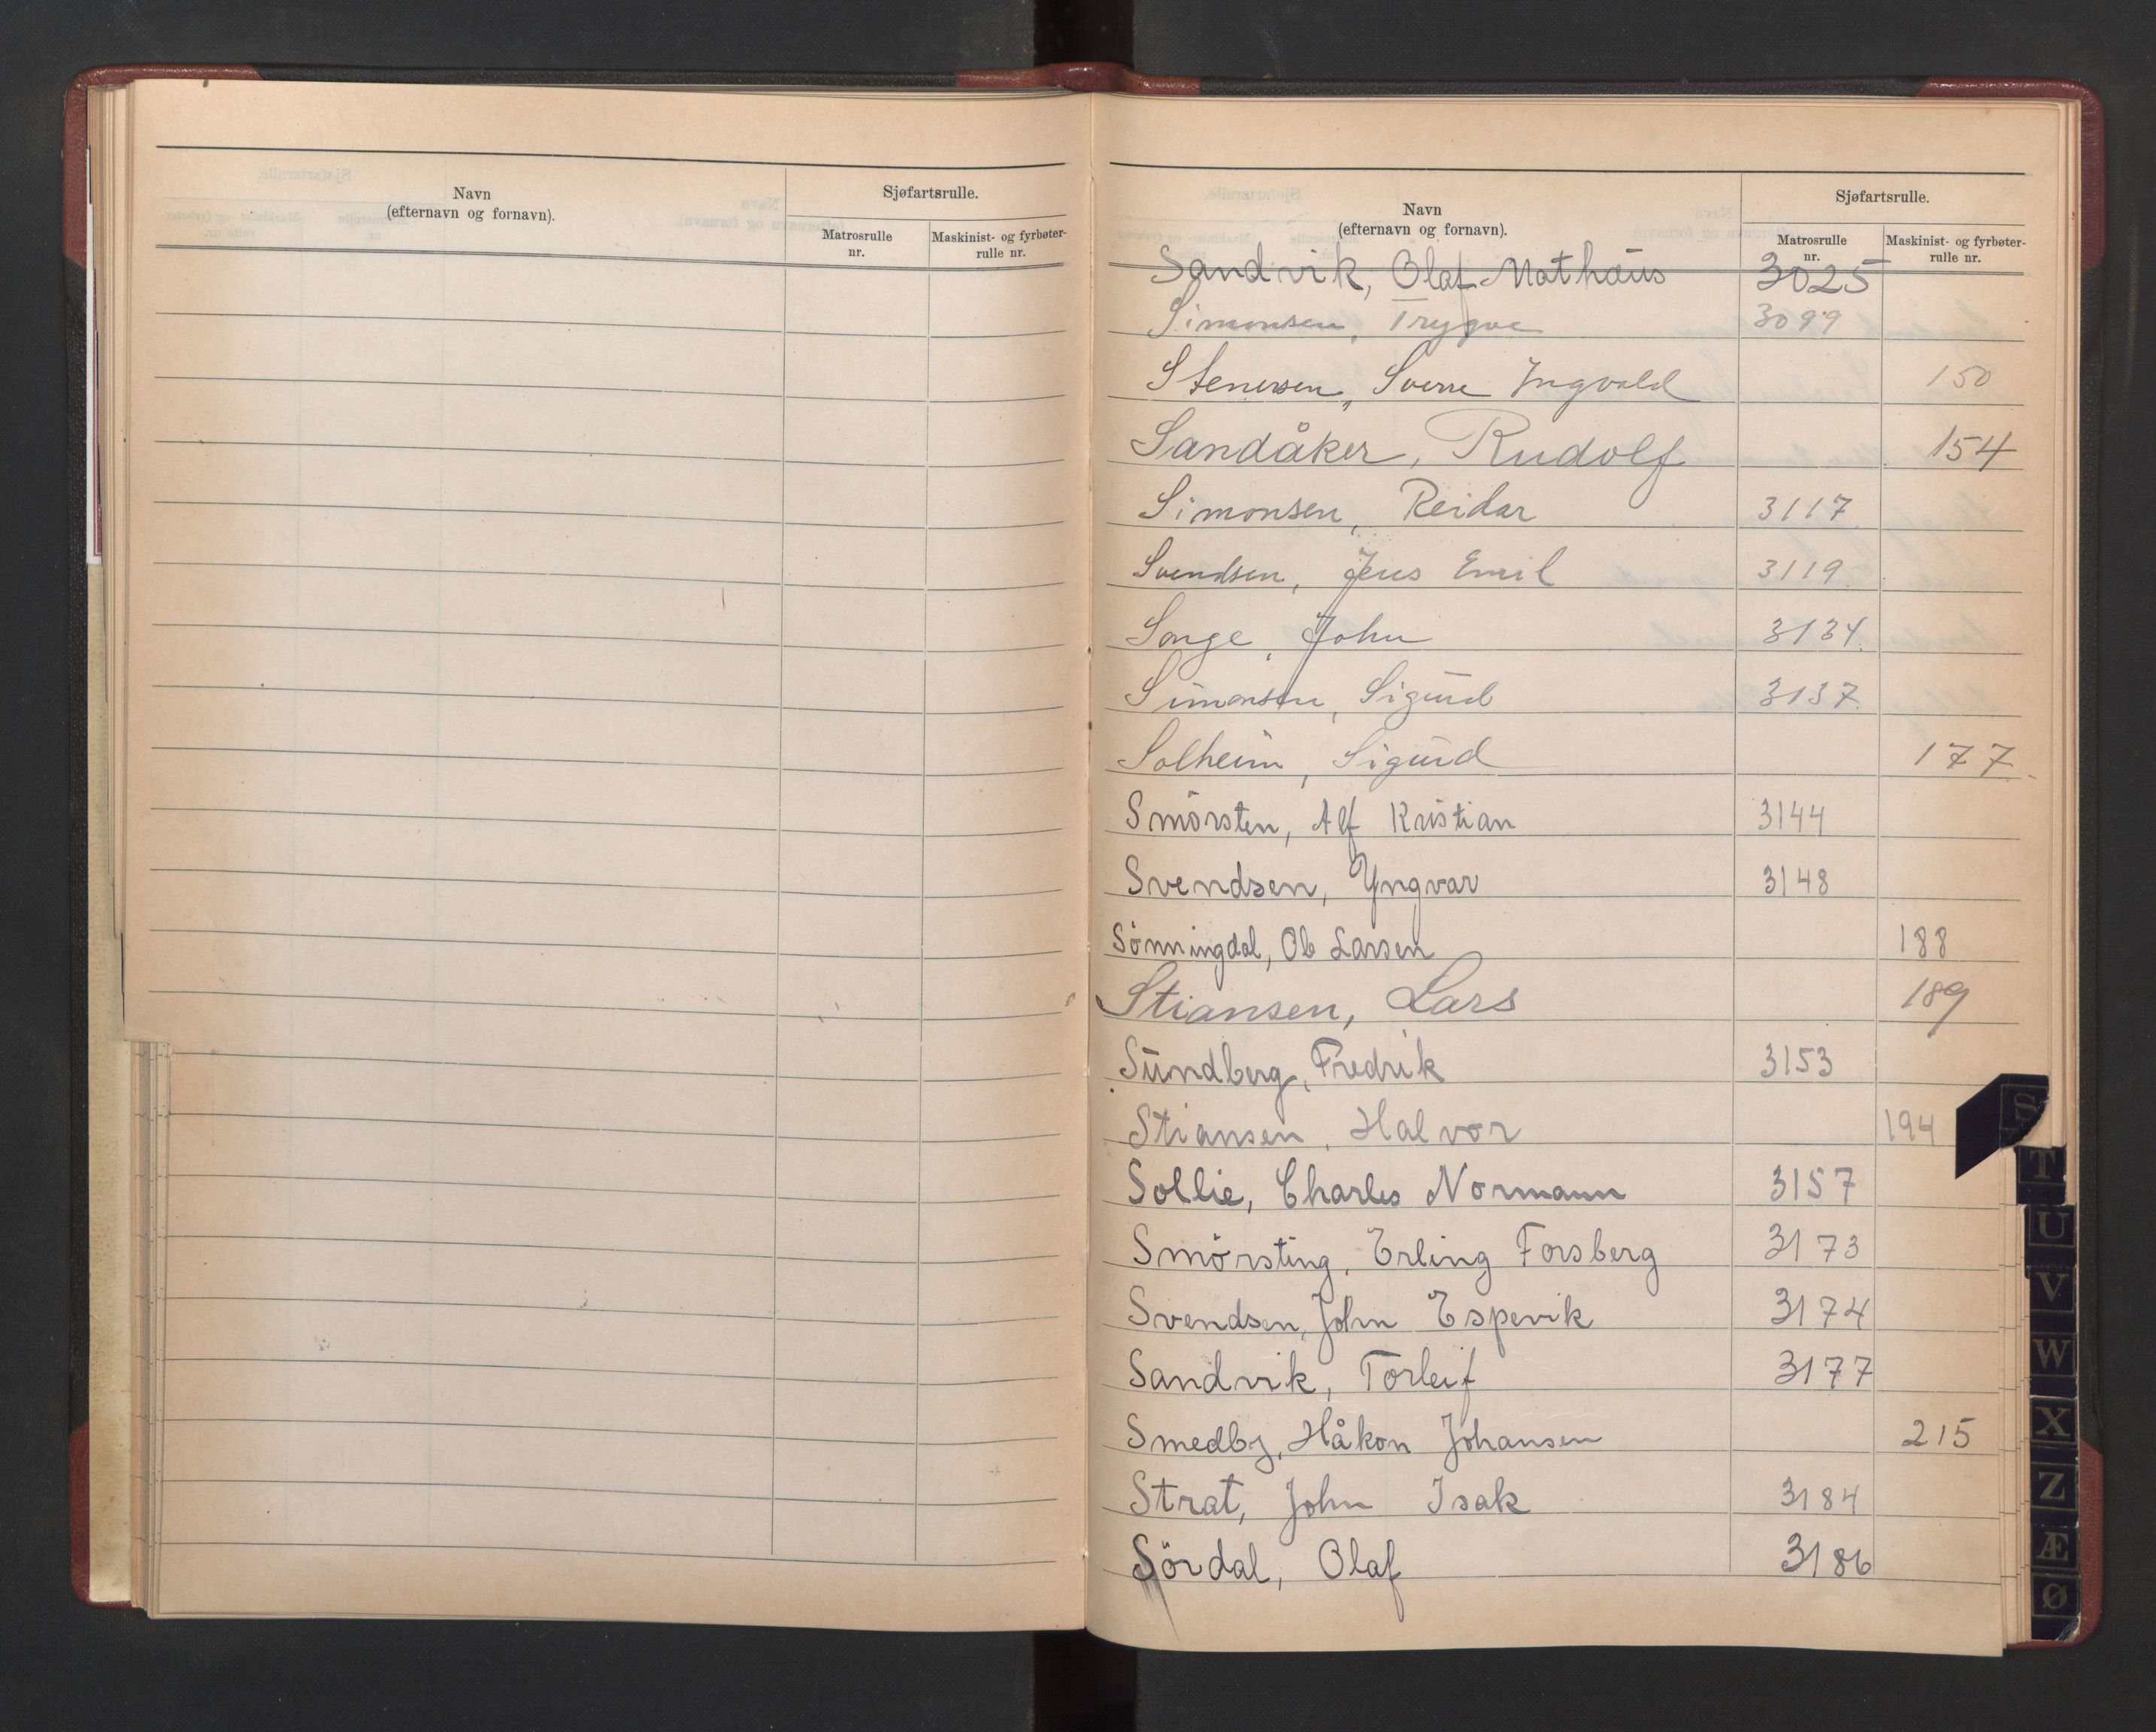 Navn
(efternavn og fornavn).
Sjøfartsrulle.
Matrosrulle
nr.
Maskinist- og fyrbøter-
rulle nr.
Navn
(efternavn og fornavn).
Sjøfartsrulle.
Matrosrulle
nr.
Maskinist- og fyrbøter-
rulle nr.
Sandvik, Olaf Mathæus 3025
Simonsen, Trygve 3099
Stenersen, Sverre Ingvald 150
Sandåker, Rudolf 154
Simonsen, Reidar 3117
Svendsen, Jens Emil 3119
Songe, John 3134
Simonsen, Sigurd 3137
Solheim, Sigurd 177
Smörsten, Alf Kristian 3144
Svendsen, Yngvar 3148
Sönningdal, Ole Larsen 188
Stiansen, Lars 189
Sundberg, Fredrik 3153
Stiansen, Halvor 194
Sollie, Charles Normann 3157
Smörsting, Erling Forsberg 3173
Svendsen, John Espevik 3174
Sandvik, Torleif 3177
Smedby, Håkon Johansen 215
Strat, John Isak 3184
Sördal, Olaf 3186
S
T
U
V
W
X
Z
Æ
Ø